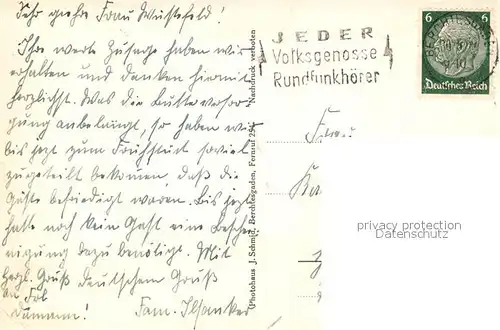 Sehr geehrte Frau Wüstefeld!
Ihre werte Zusage haben wir
erhalten und danken hiermit
herzlichst. Was die Butterversor-
gung anbelangt, so haben wir
bis jetzt zum Frühstück soviel
zugeteilt bekommen, daß die
Gäste befriedigt waren. Bis jetzt
hatte noch kein Gast eine Beschei-
nigung dazu benötigt. Mit
herzl. Gruß deutschem Gruß
an Frl
Fam. Ilsanker
(Photohaus J. Schmid, Berchtesgaden, Fernruf 294) Nachdruck verboten
JEDER
Volksgenosse
Rundfunkhörer
6 6
Deutsches Reich
Frau
privacy protection
Datenschutz